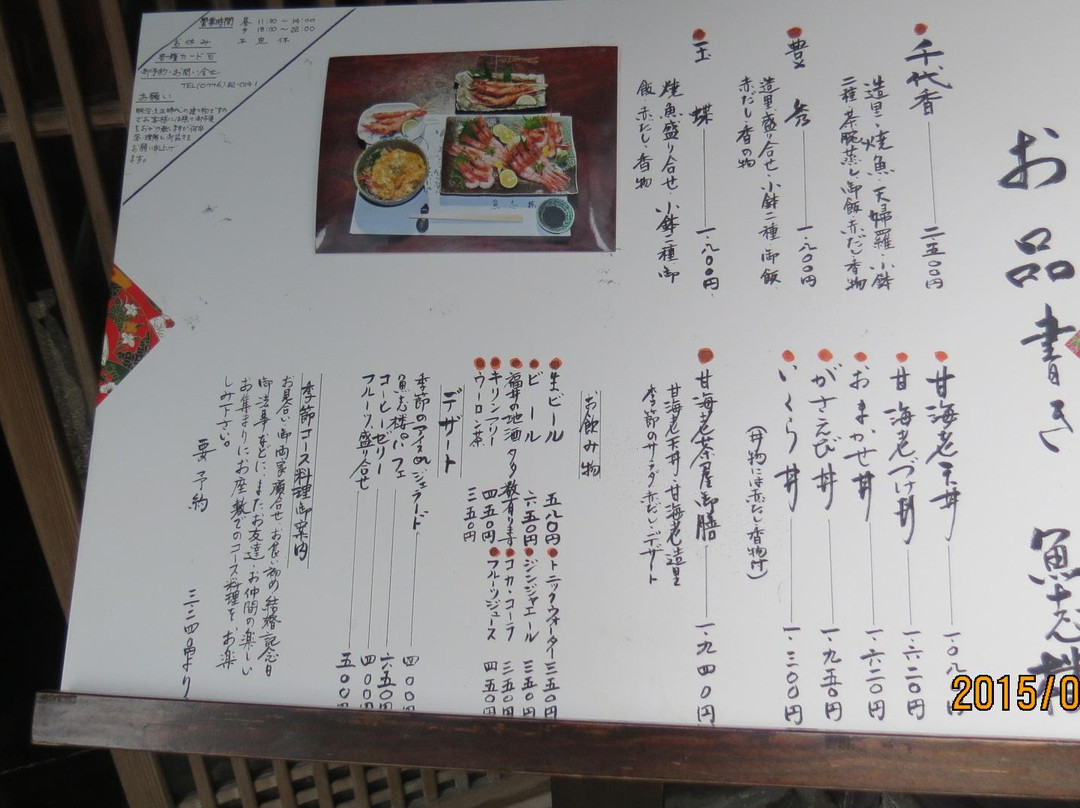 お品書き 魚志楼
千代香 二、五〇〇円
造里・焼魚・天婦羅・小鉢
二種・茶碗蒸し・御飯・赤だし・香物
豊 一、八〇〇円
造里盛り合せ・小鉢二種・御飯
赤だし・香の物
玉 蝶 一、八〇〇円
焼魚盛り合せ 小鉢二種・御
飯・赤だし・香物
甘海老天丼 一、〇八〇円
甘海老づけ丼 一、六二〇円
おまかせ丼 一、六二〇円
がさえび丼 一、九五〇円
いくら丼 一、三〇〇円
(丼物には赤だし・香物付)
甘海老茶屋御膳 一、九四〇円
甘海老天丼・甘海老造里
季節のサラダ・赤だし・デザート
お飲み物
生ビール 五八〇円
ビール 六五〇円
福井の地酒 多数有ります
キリンフリー 四五〇円
ウーロン茶 三五〇円
トニックウォーター 三五〇円
ジンジャエール 三五〇円
コカ・コーラ 三五〇円
フルーツジュース 四五〇円
デザート
季節のアイスorジェラード 四〇〇円
魚志楼パフェ 六五〇円
コーヒーゼリー 四〇〇円
フルーツ盛り合せ 五〇〇円
季節コース料理御案内
お見合い・御両家顔合せ・お食い初め・結婚記念日
御法事などに、またお友達・お仲間の楽しい
お集まりにお座敷でのコース料理を、お楽
しみ下さい。
要予約 三、二四〇円より
営業時間 昼 11:30～14:00
夕 18:00～22:00
お休み 不定休
各種カード可
御予約・お問い合せ
TEL(0776)82-0141
お願い
お願い申し上げ
ます。
2015/0